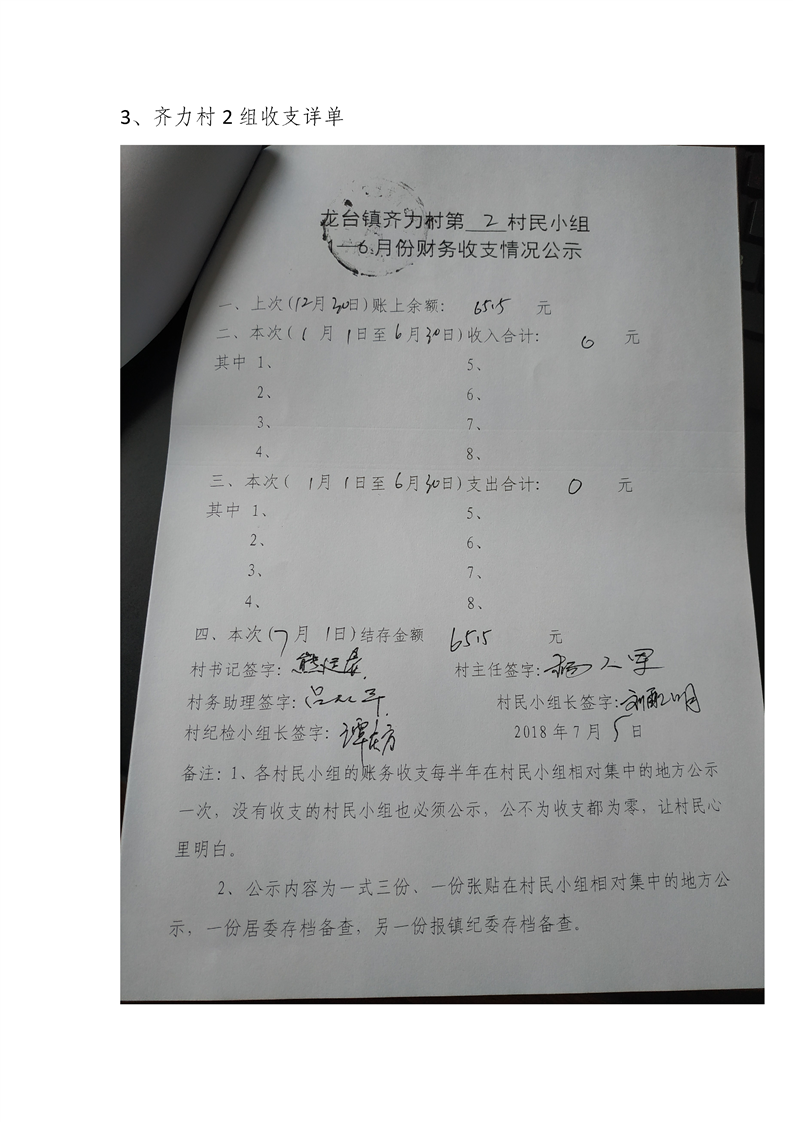 3、齐力村 2 组收支详单
龙台镇齐力村第 2 村民小组
1—6月份财务收支情况公示
一、上次(12月30日)账上余额： 6515 元
二、本次( 1 月 1日至 6月30日)收入合计： 0 元
其中 1、 5、
2、 6、
3、 7、
4、 8、
三、本次( 1月 1日至 6月30日)支出合计： 0 元
其中 1、 5、
2、 6、
3、 7、
4、 8、
四、本次(7 月 1日)结存金额 6515 元
村书记签字： 村主任签字：
村务助理签字： 村民小组长签字：
村纪检小组长签字： 2018 年 7 月 5 日
备注：1、各村民小组的账务收支每半年在村民小组相对集中的地方公示
一次，没有收支的村民小组也必须公示，公不为收支都为零，让村民心
里明白。
2、公示内容为一式三份、一份张贴在村民小组相对集中的地方公
示，一份居委存档备查，另一份报镇纪委存档备查。